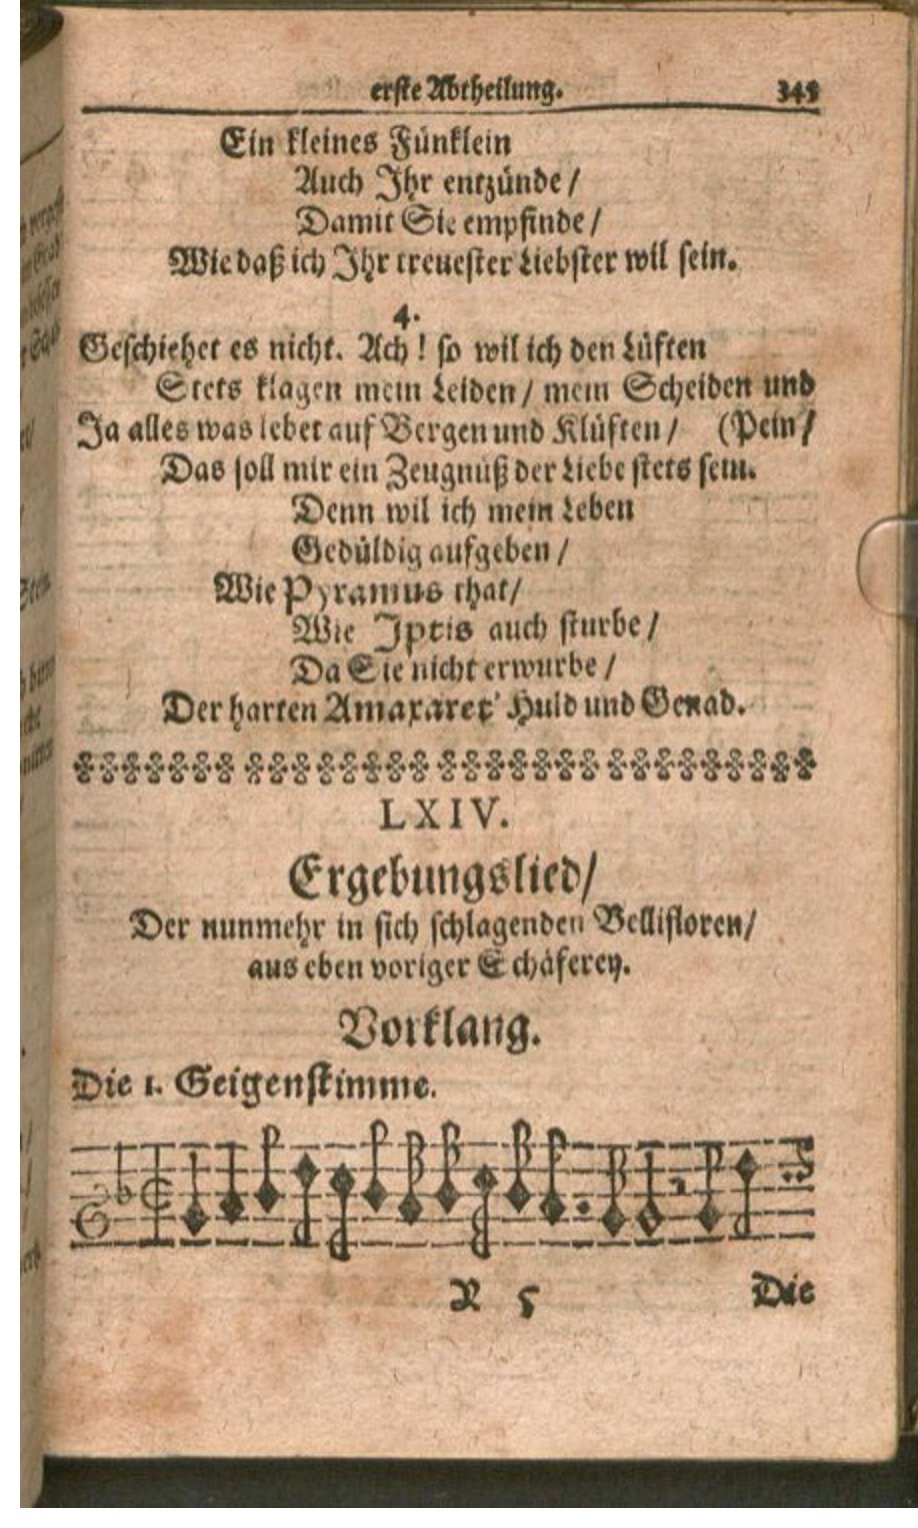 erste Abtheilung. 345
Ein kleines Fünklein
Auch Ihr entzünde /
Damit Sie empfinde /
Wie daß ich Ihr treuester Liebster wil sein.
4.
Geschiehet es nicht. Ach ! so wil ich den Lüften
Stets klagen mein Leiden / mein Scheiden und
Ja alles was lebet auf Bergen und Klüften / (Pein /
Das soll mir ein Zeugnüß der Liebe stets sein.
Denn wil ich mein Leben
Gedüldig aufgeben /
Wie Pyramus that /
Wie Iptis auch sturbe /
Da Sie nicht erwurbe /
Der harten Amaxaret' Huld und Genad.
LXIV.
Ergebungslied /
Der nunmehr in sich schlagenden Bellifloren /
aus eben voriger Schäferey.
Vorklang.
Die 1. Geigenstimme.
5 Die